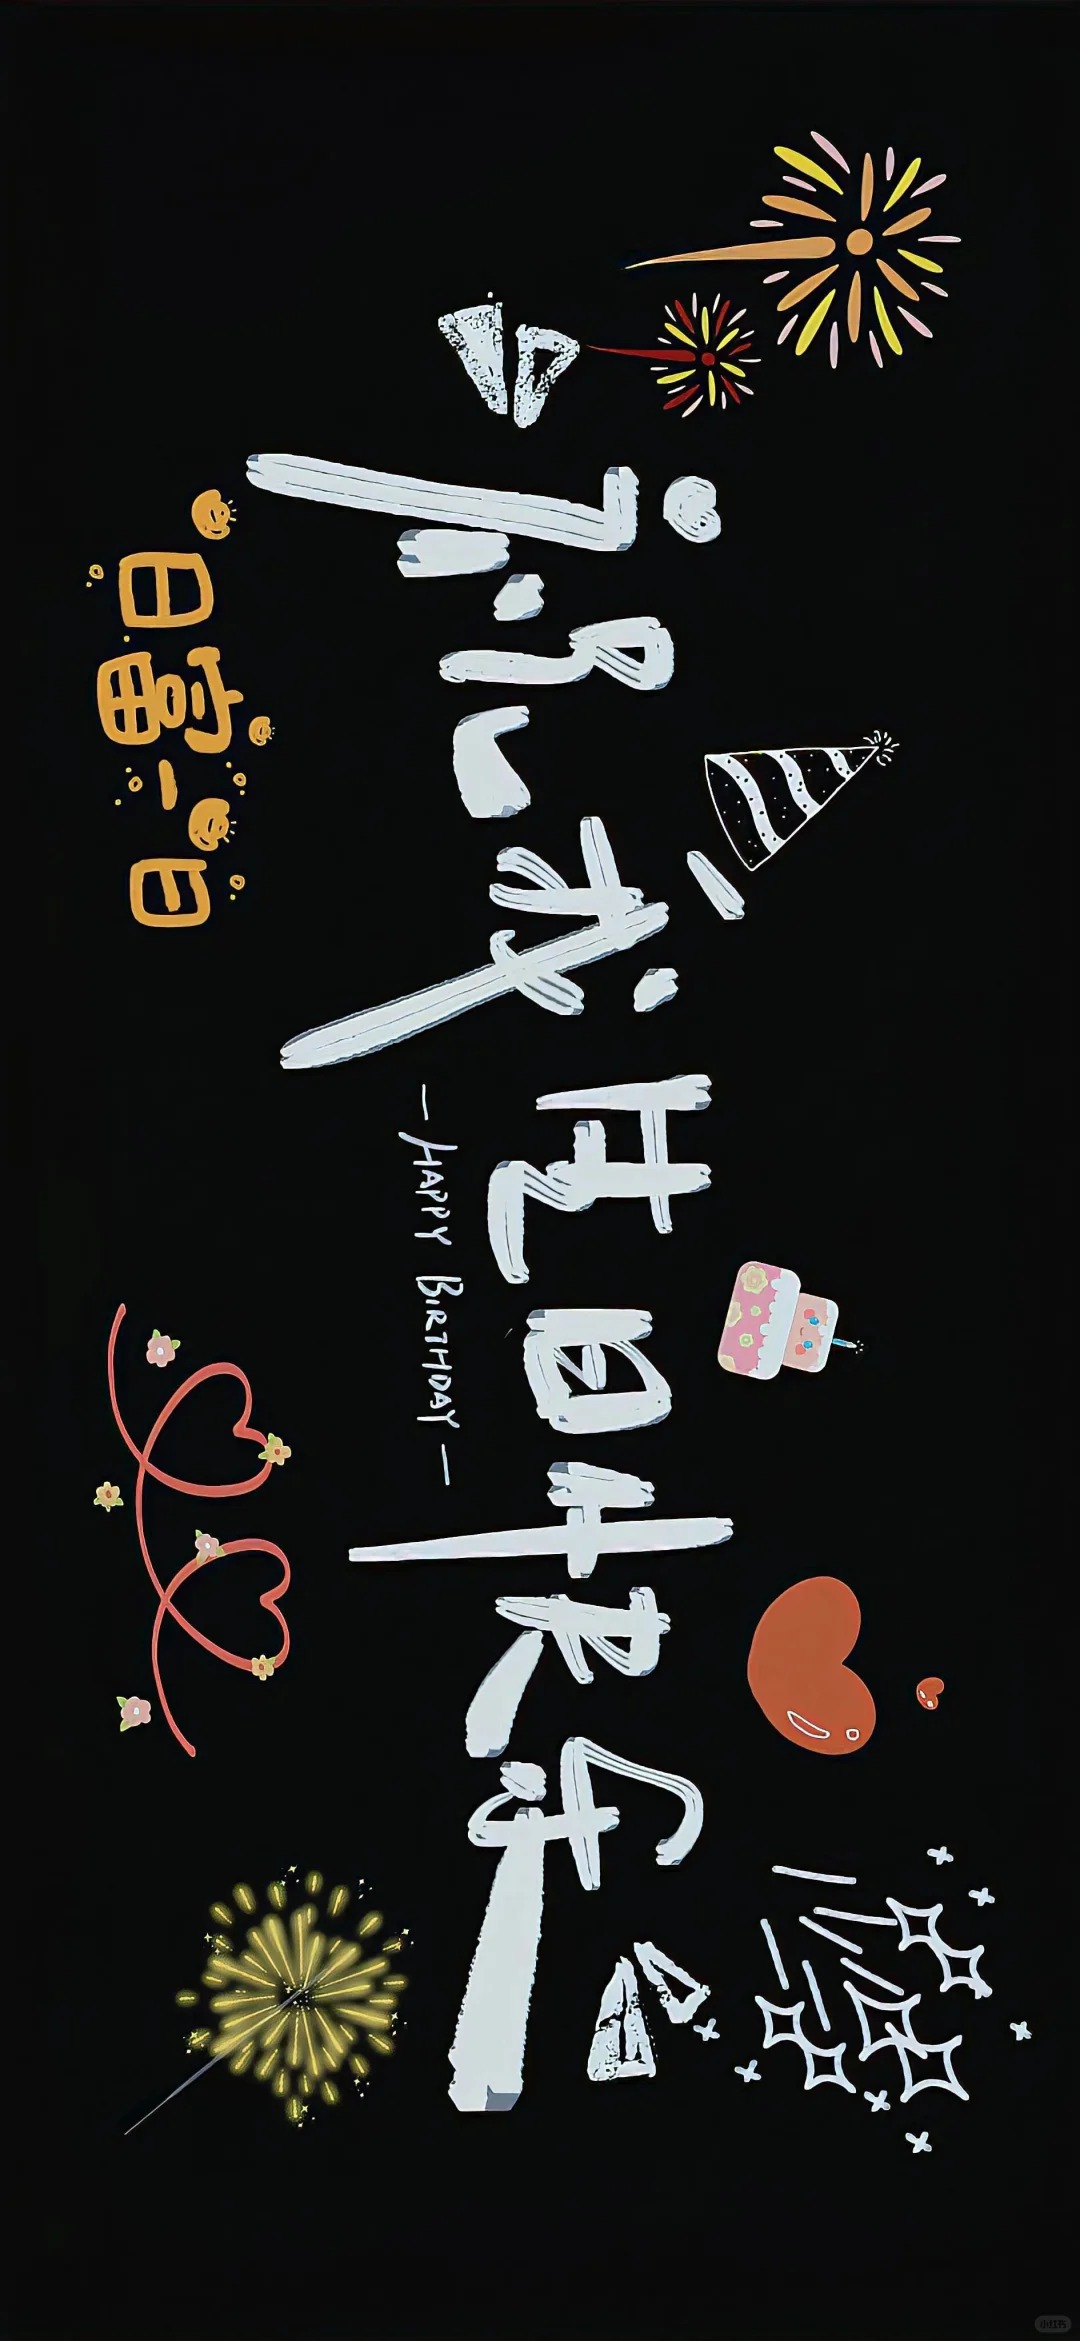 祝我生日快乐
— HAPPY BIRTHDAY —
日富一日